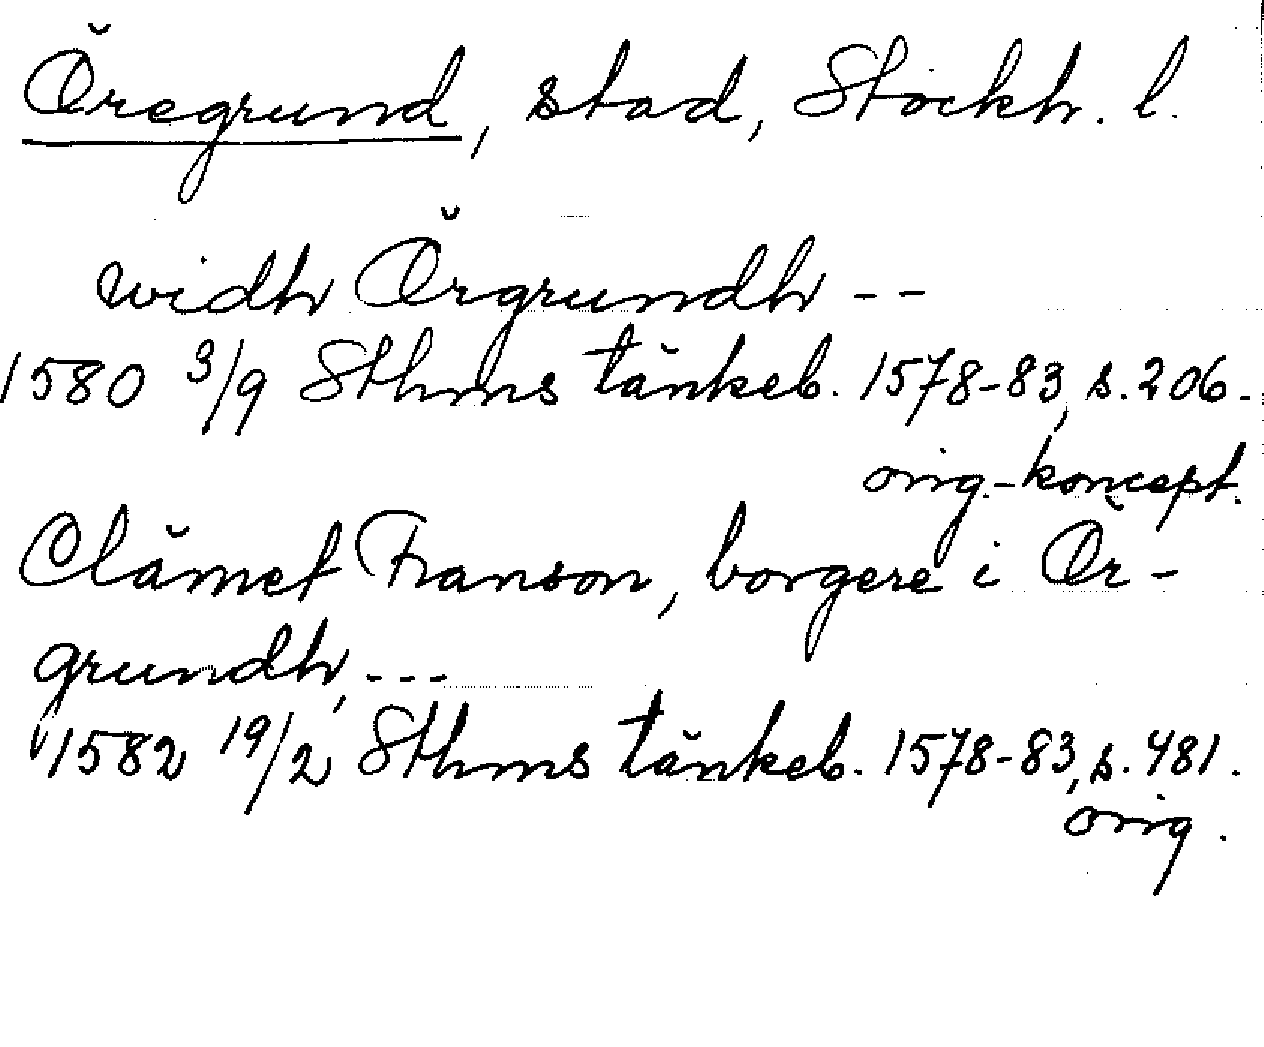 Öregrund, stad, Stockh. l.
widh Örgrundh --
1580 3/9 Sthms tänkeb. 1578-83, s. 206.
orig-koncept.
Clämet Franson, borgere i Ör-
grundh, ---
1582 19/2 Sthms tänkeb. 1578-83, s. 481.
orig.